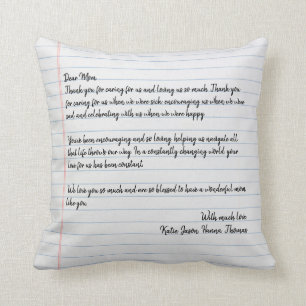 Dear Mom
Thank you for caring for us and loving us so much. Thank you
for caring for us when we were sick, encouraging us when we were
sad and celebrating with us when we were happy.
You've been encouraging and so loving, helping us navigate all
that life threw our way. In a constantly changing world your
love for us has been constant.
We love you so much and are so blessed to have a wonderful mom
like you.
With much love
Katie Jason Hanna Thomas